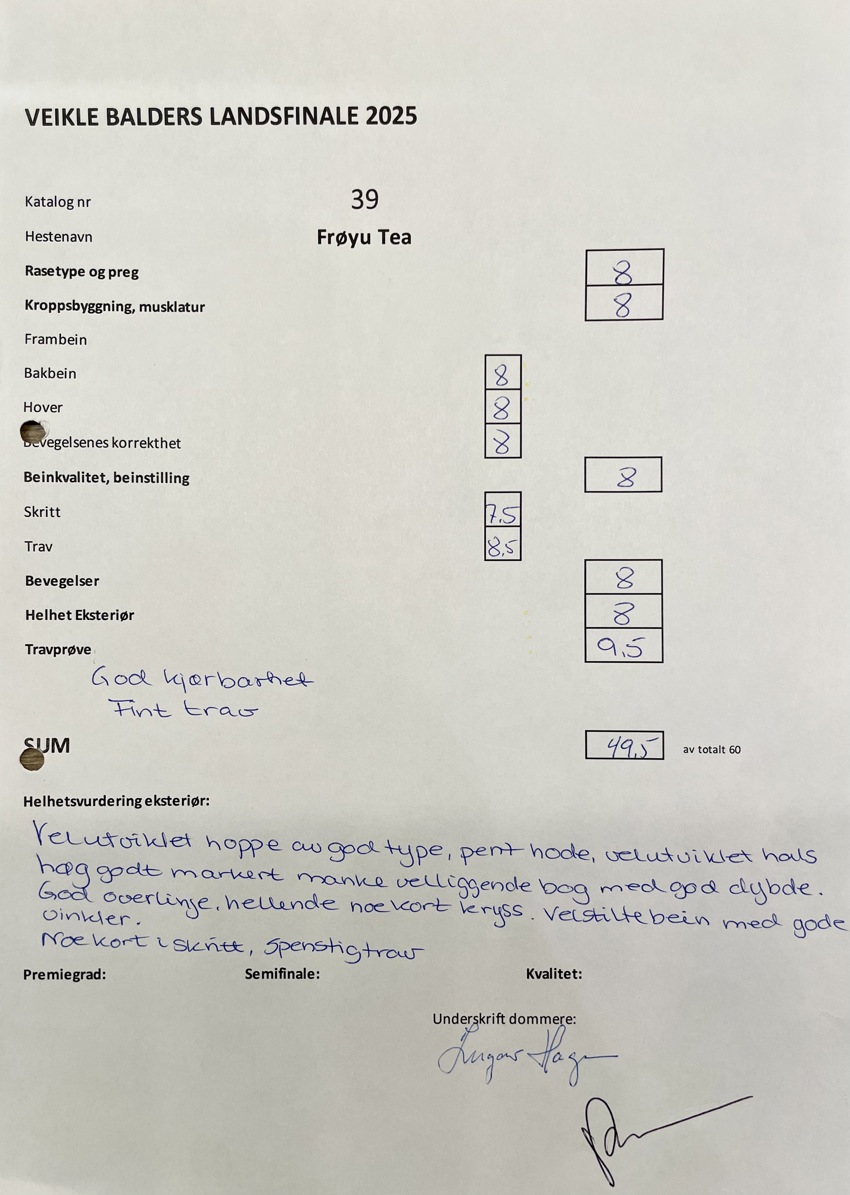 VEIKLE BALDERS LANDSFINALE 2025
Katalog nr 39
Hestenavn Frøyu Tea
Rasetype og preg 8
Kroppsbyggning, musklatur 8
Frambein
Bakbein 8
Hover 8
Bevegelsenes korrekthet 8
Beinkvalitet, beinstilling 8
Skritt 7.5
Trav 8,5
Bevegelser 8
Helhet Eksteriør 8
Travprøve 9,5
God kjørbarhet
Fint trav
SUM 49,5 av totalt 60
Helhetsvurdering eksteriør:
Velutviklet hoppe av god type, pent hode, velutviklet hals
høg godt markert manke velliggende bog med god dybde.
God overlinje, hellende noe kort kryss. Velstilte bein med gode
vinkler.
Noe kort i skritt, spenstig trav
Premiegrad: Semifinale: Kvalitet:
Underskrift dommere: